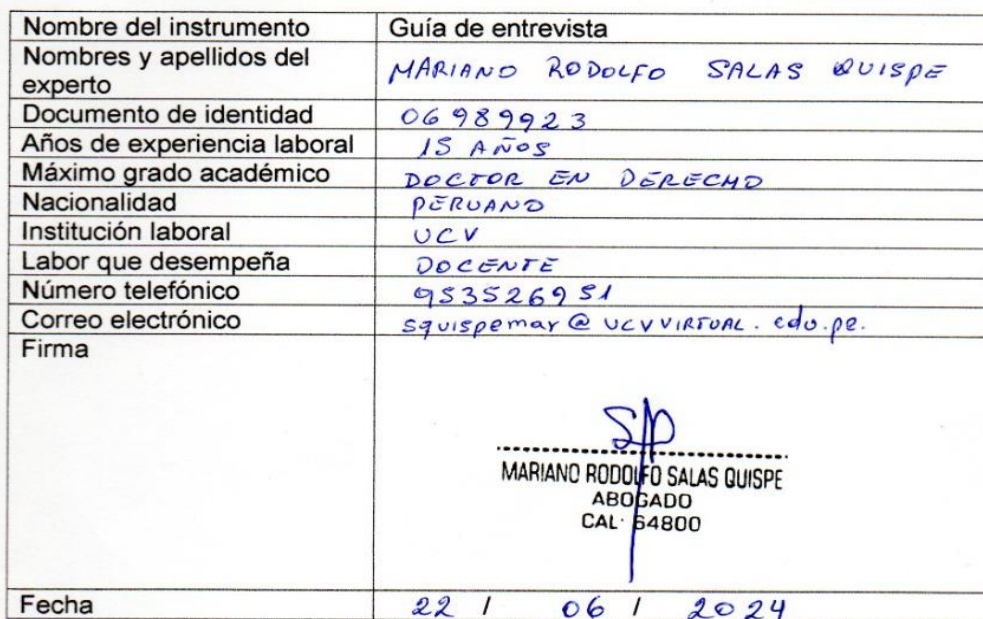 Nombre del instrumento Guía de entrevista
Nombres y apellidos del
experto MARIANO RODOLFO SALAS QUISPE
Documento de identidad 06989923
Años de experiencia laboral 15 AÑOS
Máximo grado académico DOCTOR EN DERECHO
Nacionalidad PERUANO
Institución laboral UCV
Labor que desempeña DOCENTE
Número telefónico 953526951
Correo electrónico squispemar@UCVVIRTUAL.edu.pe.
Firma
MARIANO RODOLFO SALAS QUISPE
ABOGADO
CAL· 64800
Fecha 22 / 06 / 2024